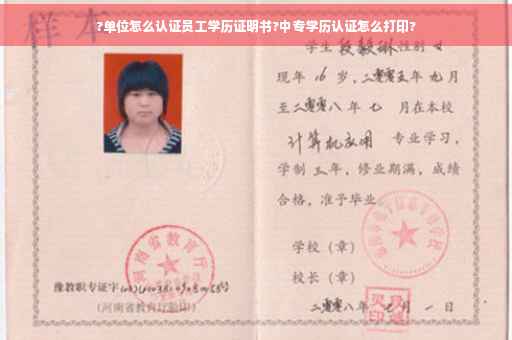 ?单位怎么认证员工学历证明书?中专学历认证怎么打印?
样本
学生 段毅琳 性别 女
现年 16 岁,二零零五年 九月
至二零零八年 七 月在本校
计算机应用 专业学习,
学制 三 年,修业期满,成绩
合格,准予毕业
学校(章)
校长(章)
二零零八年 七 月 一 日
河南省教育厅
豫教职专证字
(河南省教育厅验印)